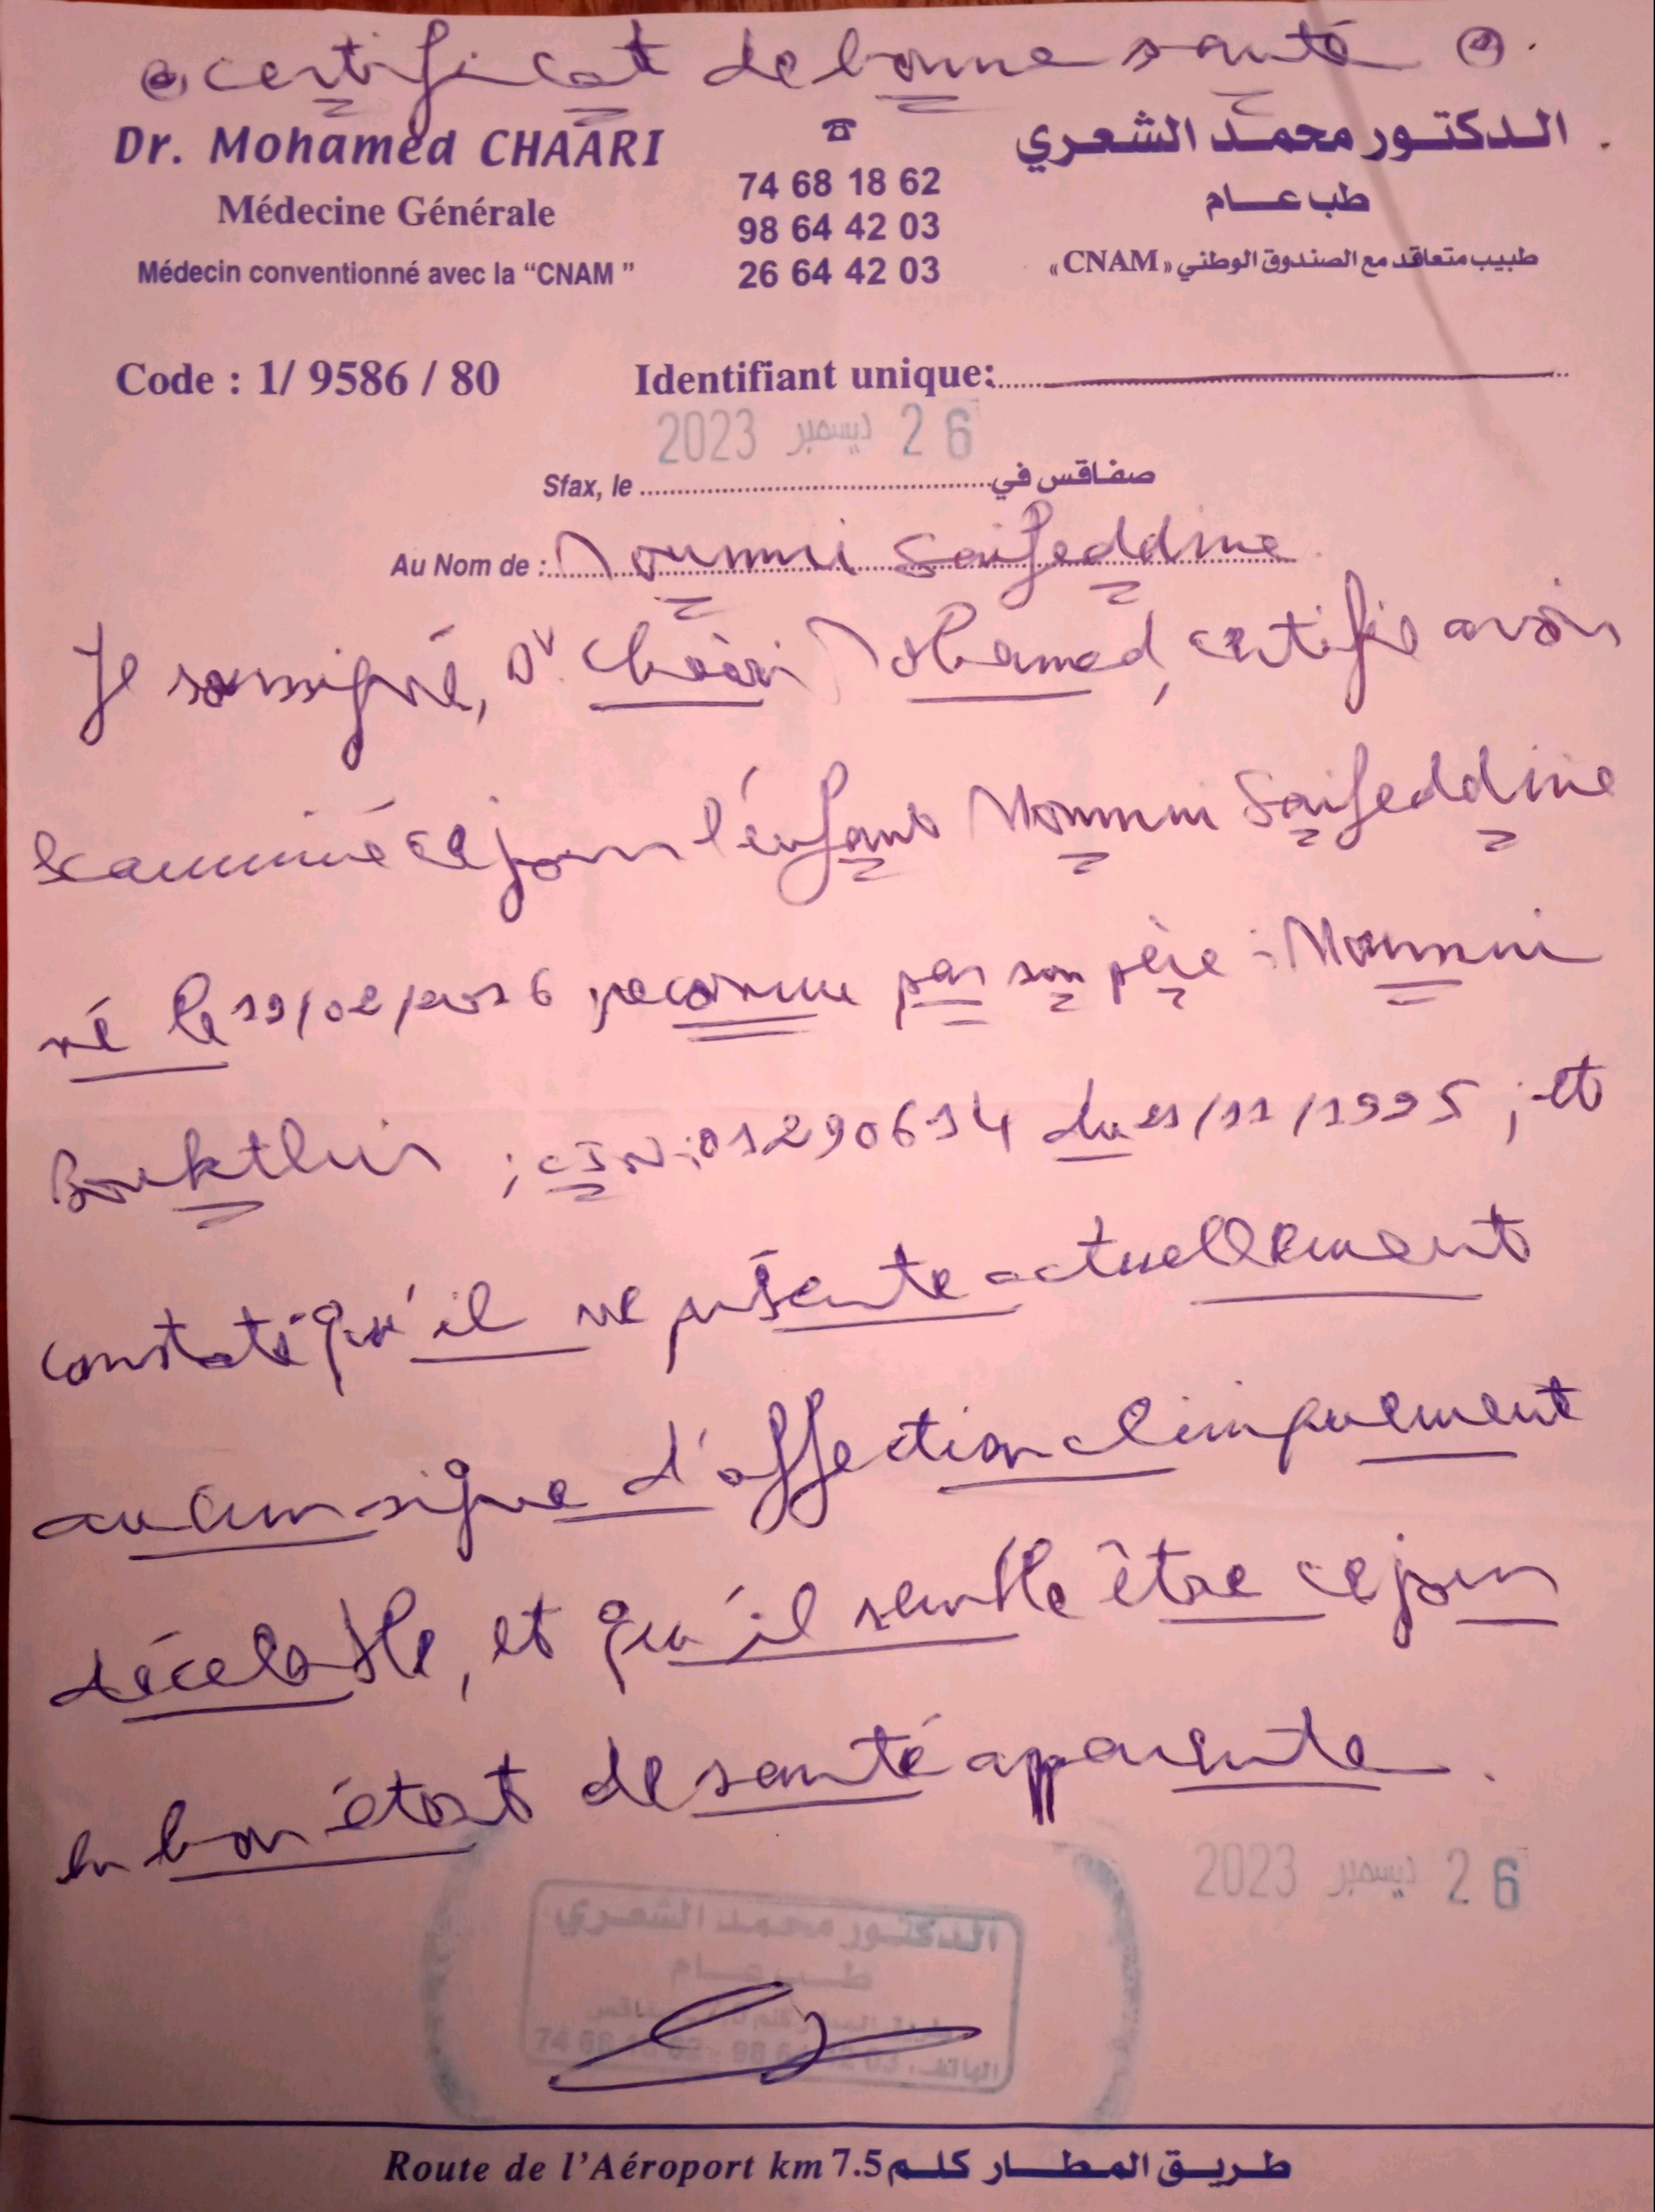 certificat de bonne santé
Dr. Mohamed CHAARI
Médecine Générale
Médecin conventionné avec la “CNAM ”
☎
74 68 18 62
98 64 42 03
26 64 42 03
الدكتور محمد الشعري
طب عام
طبيب متعاقد مع الصندوق الوطني «CNAM»
Code : 1/ 9586 / 80
Identifiant unique:
26 ديسمبر 2023
Sfax, le صفاقس في
Au Nom de : Moumni Saifeddine
Je soussigné, Dr Chaâri Mohamed, certifie avoir
examiné ce jour l'enfant Moumni Saifeddine
né le 19/02/2016 reconnue par son père : Moumni
Boukthir ; CIN: 01290614 du 21/11/1995 ; et
constaté qu'il ne présente actuellement
aucun signe d'affection cliniquement
décelable, et qu'il semble être ce jour
en bon état de santé apparente.
26 ديسمبر 2023
الدكتور محمد الشعري
طب عام
74 68 18 62 - 98 64 42 03 الهاتف:
Route de l’Aéroport km 7.5 طريق المطار كلم